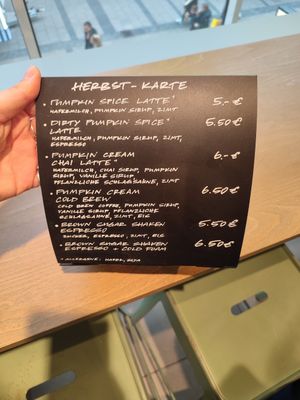 HERBST - KARTE
• PUMPKIN SPICE LATTE* 5.-€
HAFERMILCH, PUMPKIN SIRUP, ZIMT
• DIRTY PUMPKIN SPICE* 5.50€
LATTE
HAFERMILCH, PUMPKIN SIRUP, ZIMT,
ESPRESSO
• PUMPKIN CREAM 6.-€
CHAI LATTE*
HAFERMILCH, CHAI SIRUP, PUMPKIN
SIRUP, VANILLE SIRUP,
PFLANZLICHE SCHLAGSAHNE, ZIMT
• PUMPKIN CREAM 6.50€
COLD BREW
COLD BREW COFFEE, PUMPKIN SIRUP,
VANILLE SIRUP, PFLANZLICHE
SCHLAGSAHNE, ZIMT, EIS
• BROWN SUGAR SHAKEN 5.50€
ESPRESSO
ZUCKER, ESPRESSO, ZIMT, EIS
• BROWN SUGAR SHAKEN 6.50€
ESPRESSO + COLD FOAM
* ALLERGENE: HAFER, SOJA